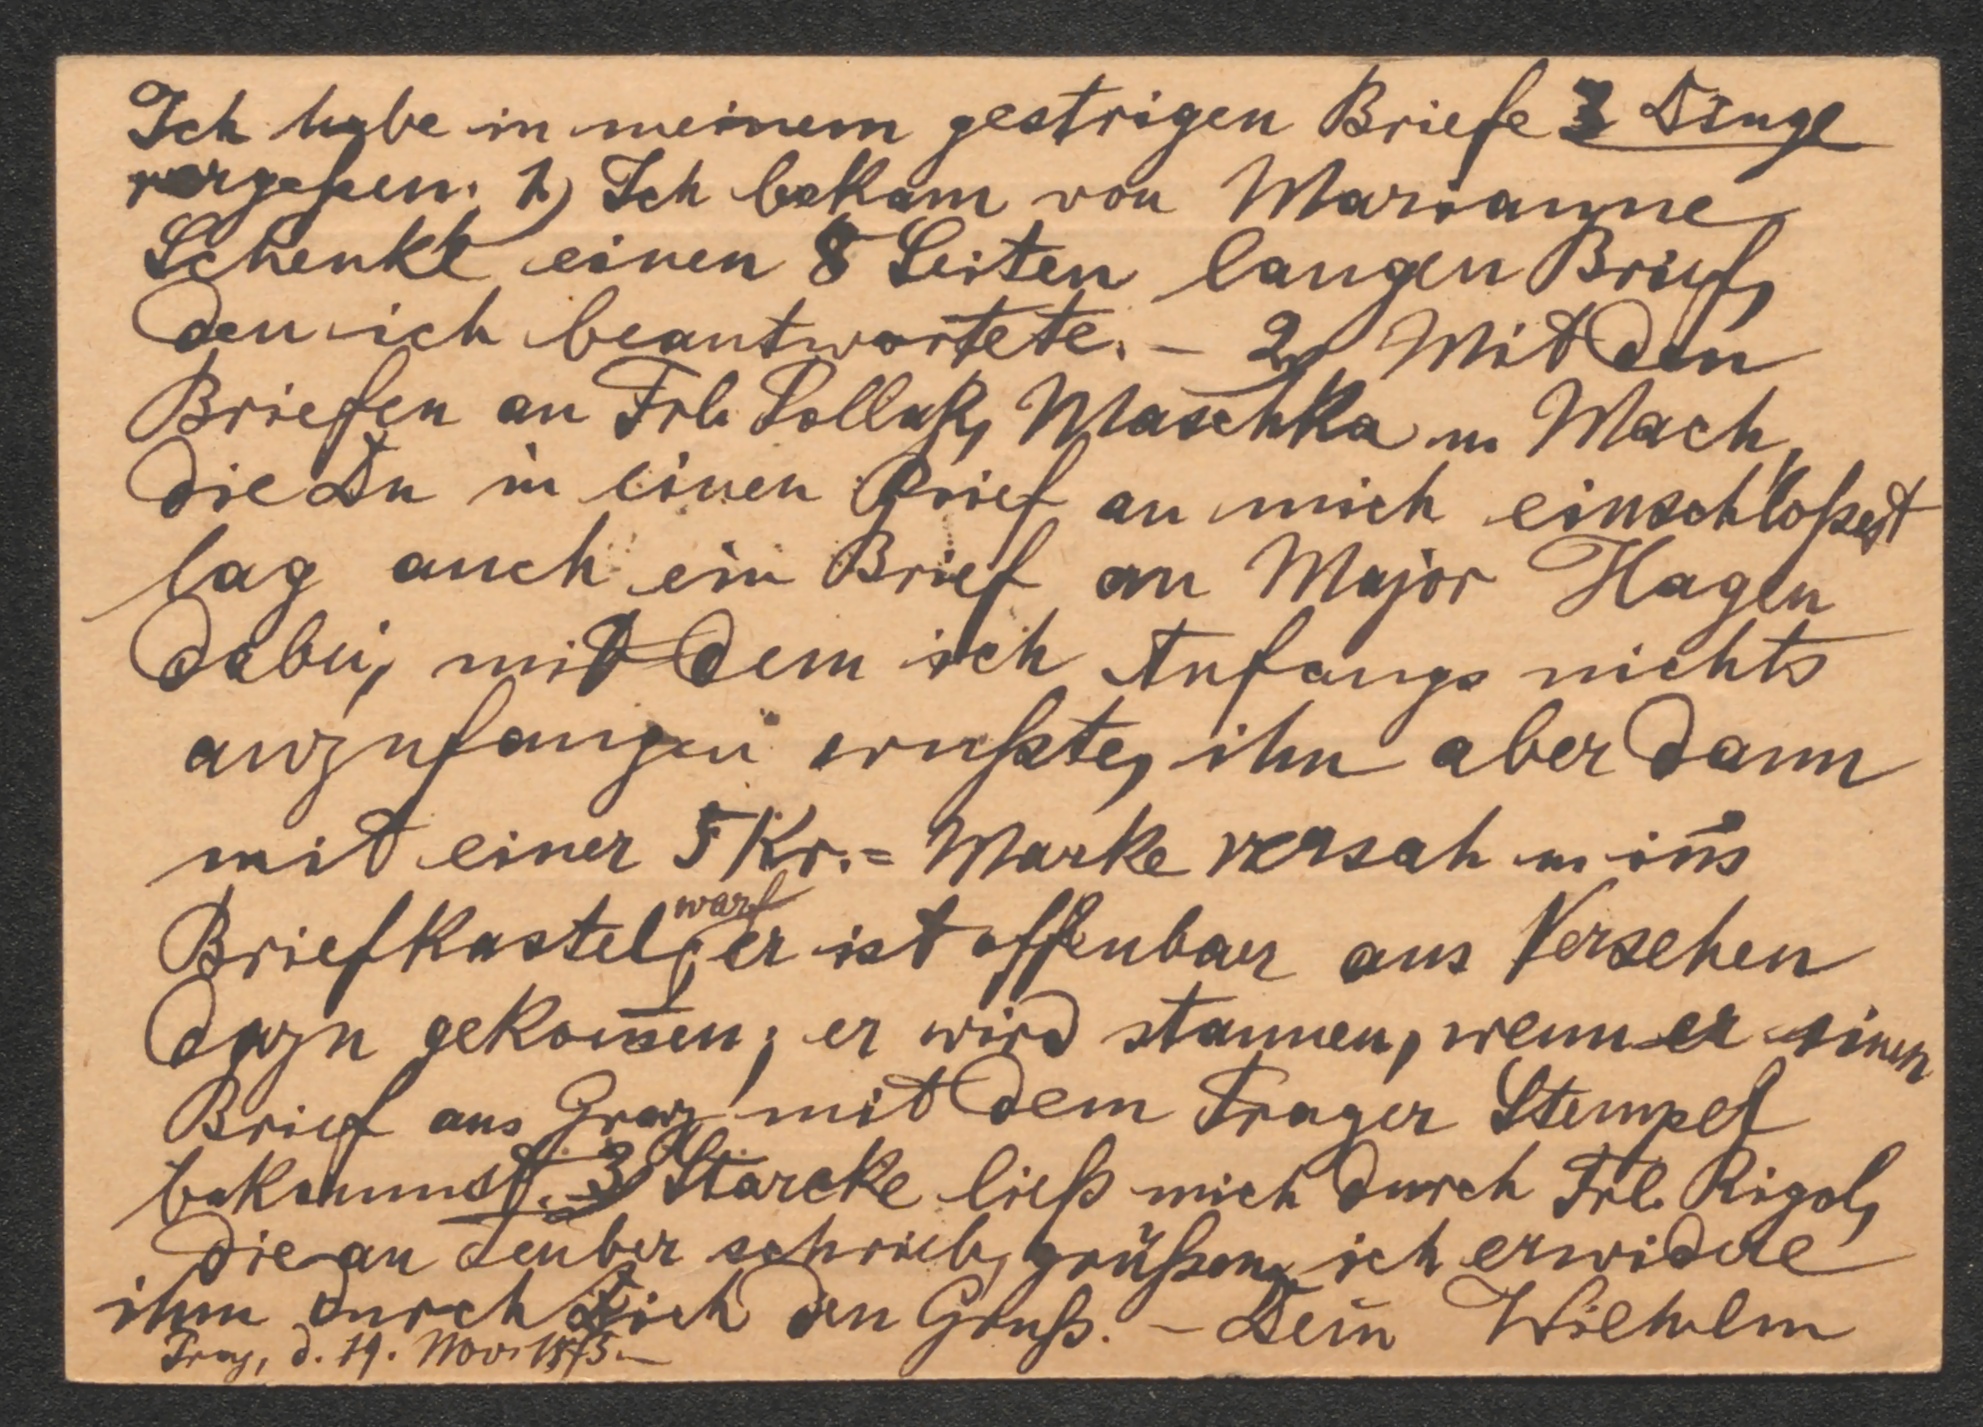 Ich habe in meinem gestrigen Briefe 3 Dinge
vergeßen. 1) Ich bekam von Marianne
Schenkl einen 8 Seiten langen Brief,
den ich beantwortete. – 2) Mit den
Briefen an Frl. Pollak, Maschka u. Mach,
die Du in einen Brief an mich einschloßest
lag auch ein Brief an Major Hagen
dabei, mit dem ich Anfangs nichts
anzufangen wußte, ihn aber dann
mit einer 5 Kr.= Marke versah u. ins
Briefkastel warf; er ist offenbar aus Versehen
dazu gekom̄en; er wird staunen, wenn er einen
Brief aus Graz mit dem Prager Stempel
bekommt. 3) Starcke ließ mich durch Frl. Rigol,
die an Teuber schrieb, grüßen, ich erwidere
ihm durch Dich den Gruß. – Dein Wilhelm
Prag, d. 19. Nov. 1875.–